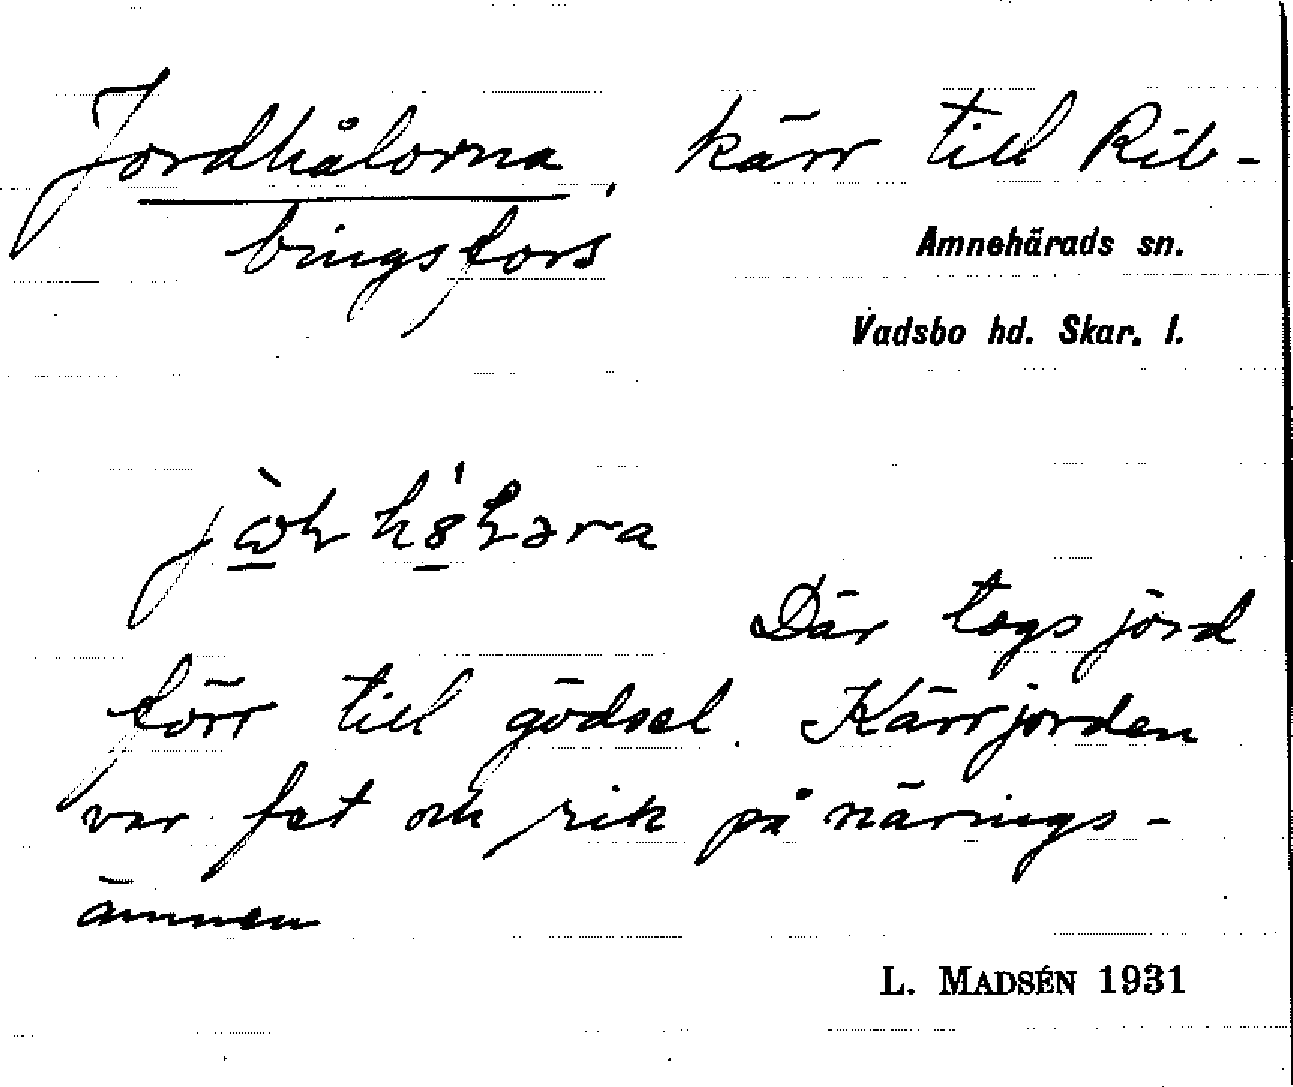 Jordhålorna, kärr till Rib-
bingsfors
Amnehärads sn.
Vadsbo hd. Skar. l.
Där togs jord
förr till gödsel. Kärrjorden
var fet och rik på närings-
ämnen
L. MADSÉN 1931